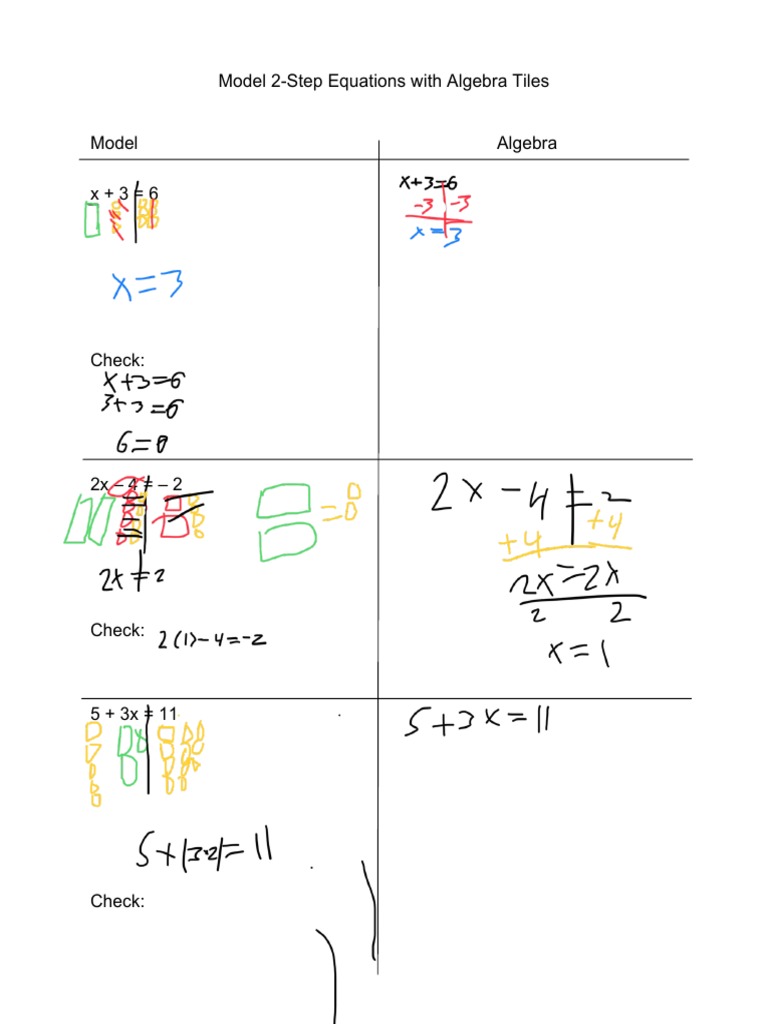 Model 2-Step Equations with Algebra Tiles
Model
Algebra
x + 3 = 6
x = 3
Check:
x+3=6
3+3=6
6=0
x+3=6
-3 -3
x = 3
2x – 4 = – 2
2x = 2
Check: 2(1)-4=-2
2x-4=2
+4 +4
2x=2x
2 2
x=1
5 + 3x = 11
5+(3·2)=11
Check:
5+3x=11